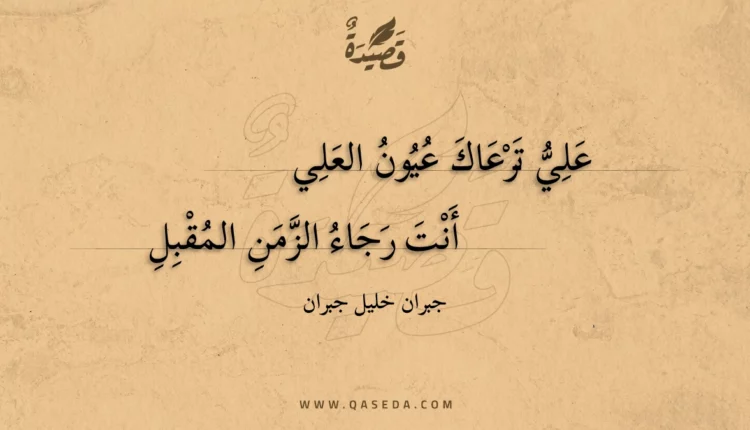 قَصِيدَةٌ
عَلِيُّ تَرْعَاكَ عُيُونُ العَلِي
أَنْتَ رَجَاءُ الزَّمَنِ المُقْبِلِ
جبران خليل جبران
WWW.QASEDA.COM